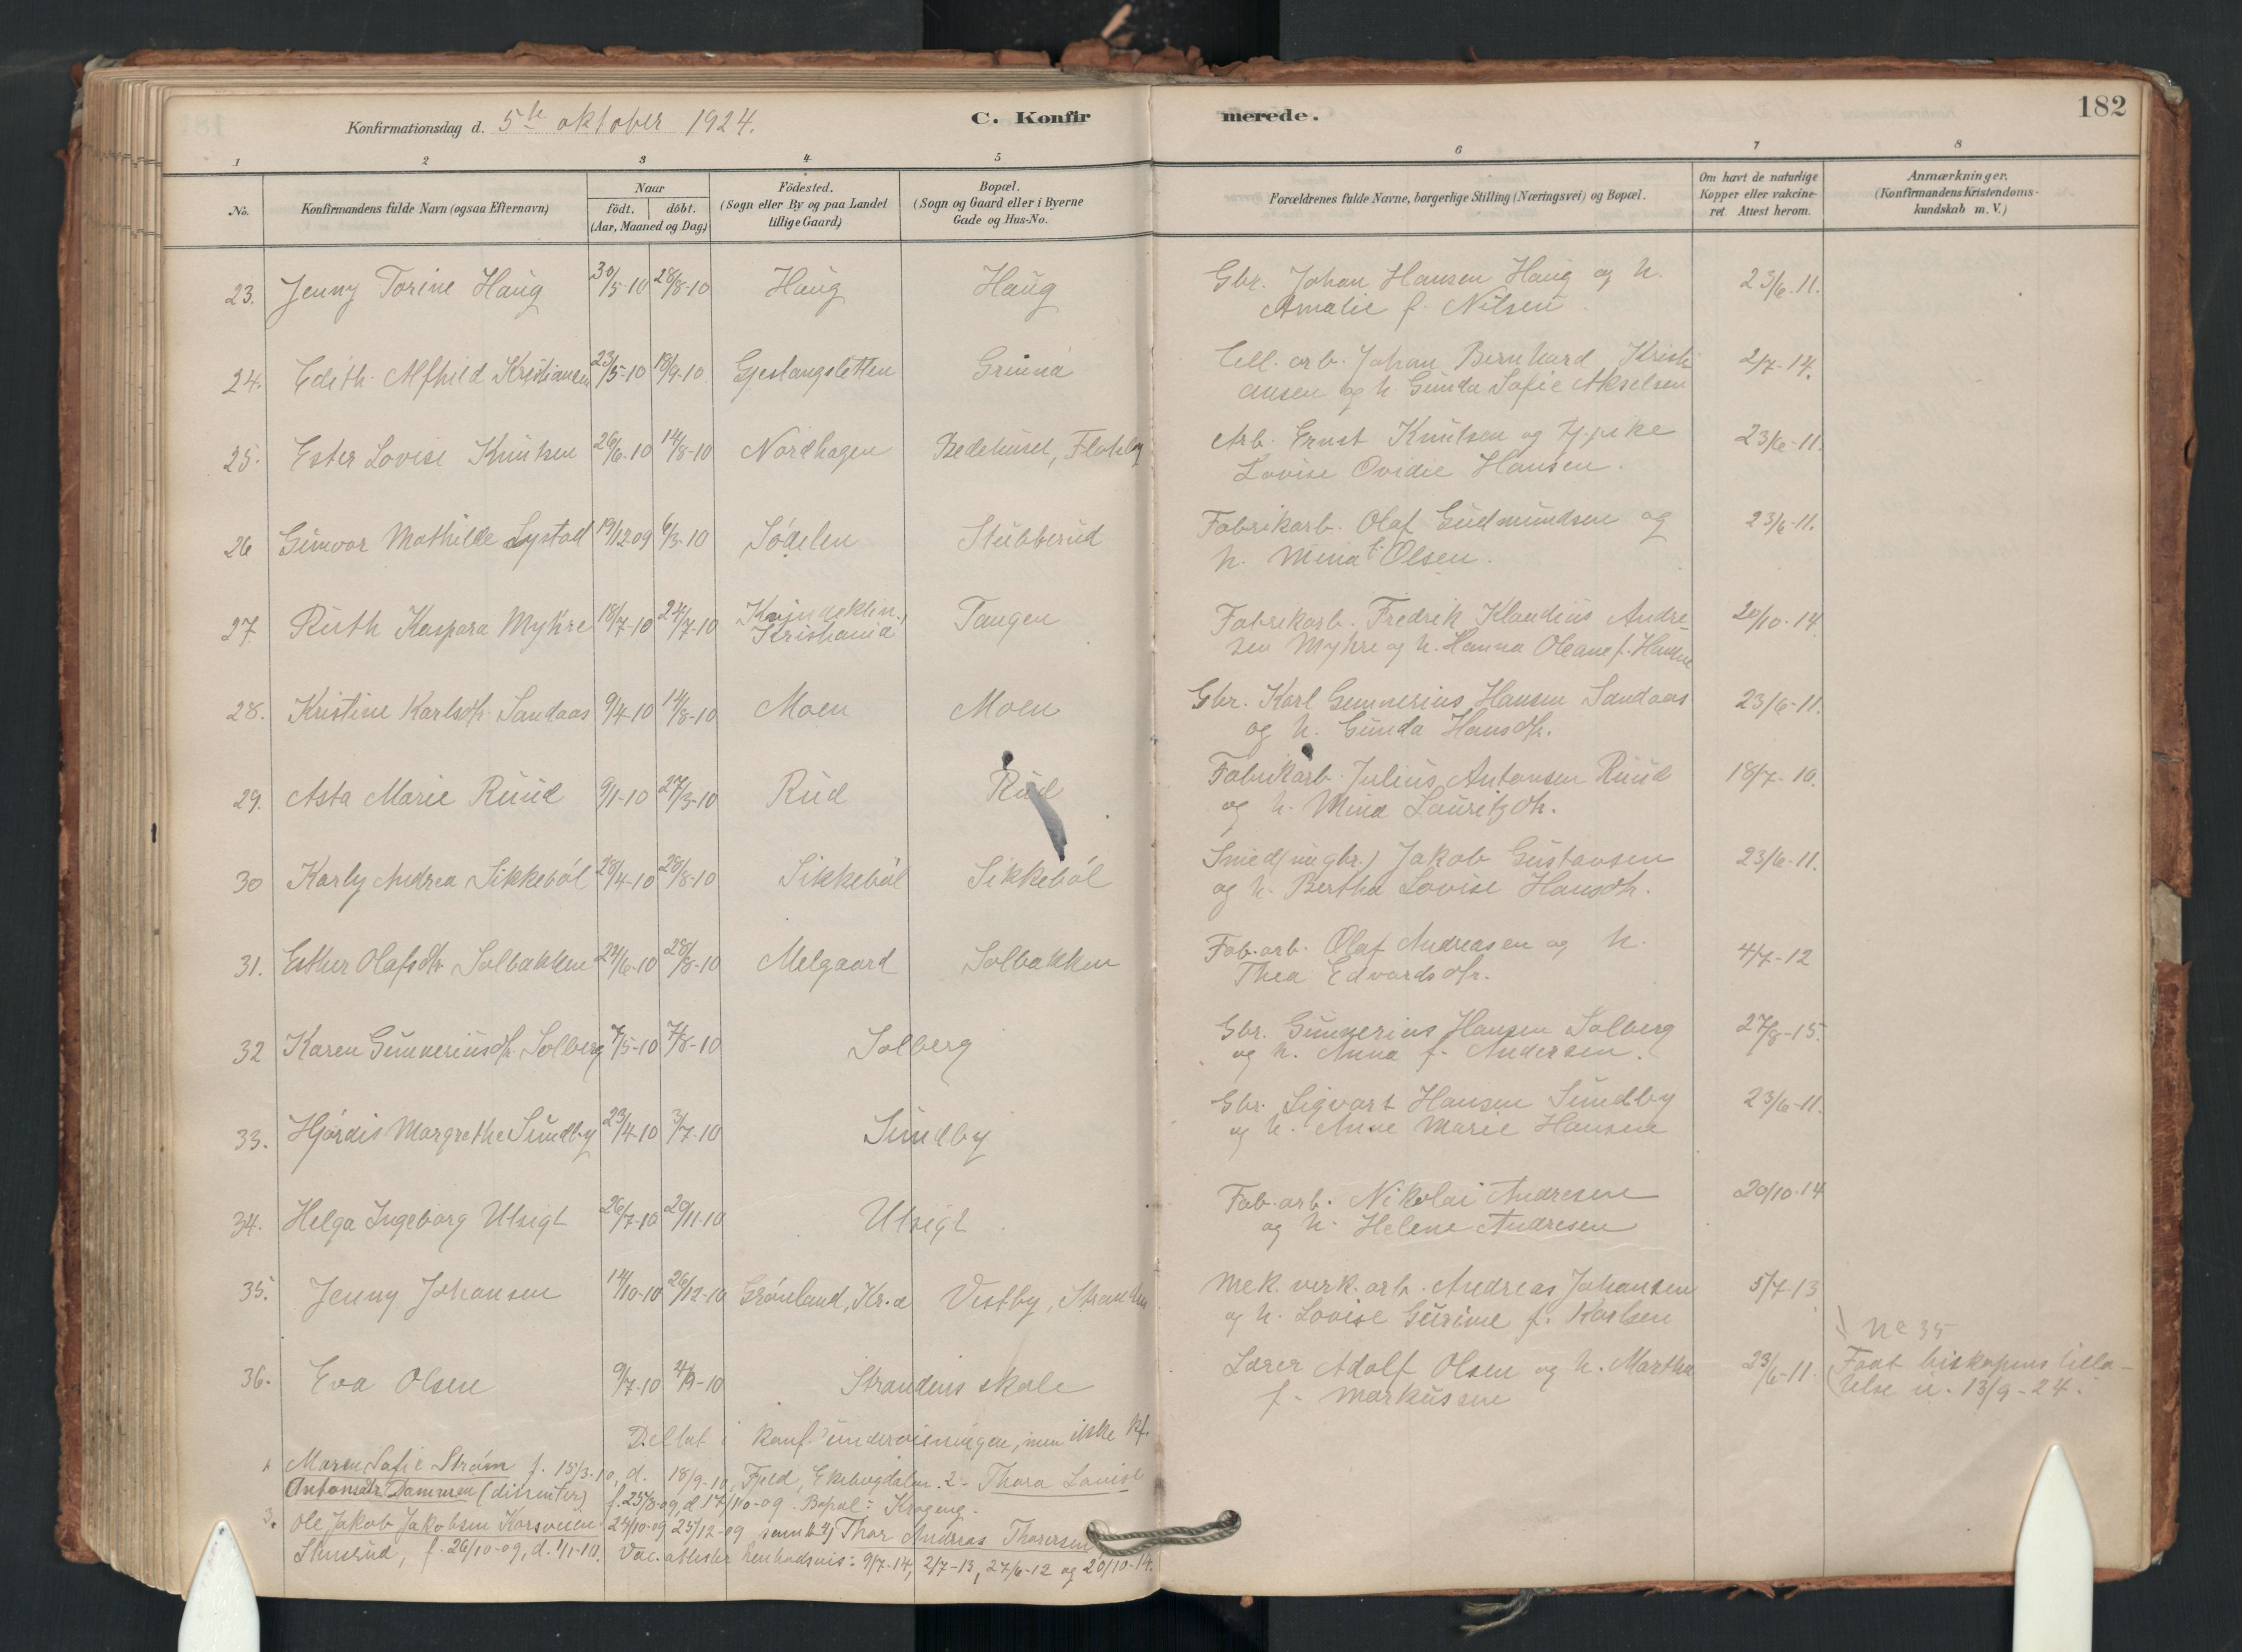 Konfirmationsdag d. 5te oktober 1924.
C. Konfirmerede.
182
1 2 3 4 5 6 7 8
No.
Konfirmandens fulde Navn (ogsaa Efternavn)
Naar
födt. döbt.
(Aar, Maaned og Dag)
Födested.
(Sogn eller By og paa Landet
tillige Gaard)
Bopæl.
(Sogn og Gaard eller i Byerne
Gade og Hus-No.
Forældrenes fulde Navne, borgerlige Stilling (Næringsvei) og Bopæl.
Om havt de naturlige
Kopper eller vakcine-
ret Attest herom.
Anmærkninger.
(Konfirmandens Kristendoms-
kundskab m. V.)
23. Jenny Torine Haug 30/5-10 28/8-10 Haug Haug Gbr. Johan Hansen Haug og h. 23/6.11.
Amalie f. Nilsen.
24. Edith Alfhild Kristiansen 23/5-10 18/9-10 Gjestangsletten Grinna Cell. arb. Johan Bernhard Kristi 2/7-14.
ansen og h. Gunda Sofie Akselsen
25. Ester Lovise Knutsen 26/6-10 14/8-10 Nordhagen Bedehuset, Flateby Arb. Ernst Knutsen og pike 23/6-11.
Lovise Ovidie Hansen.
26 Gunvor Mathilde Lystad 19/12 09 6/3-10 Södelen Stubberud Fabrikarb. Olaf Gudmundsen og 23/6-11.
h. Mina f. Olsen.
27. Ruth Kaspara Myhre 18/7-10 24/7-10 Kvindeklin., Tangen Fabrikarb. Fredrik Klaudius Andre- 20/10-14.
Kristiania
sen Myhre og h. Hanna Oleane f. Hansen
28. Kristine Karlsdtr. Sandaas 9/4-10 14/8-10 Moen Moen Gbr. Karl Gunnerius Hansen Sandaas 23/6-11.
og h. Gunda Hansdtr.
29. Asta Marie Ruud 9/1-10 27/3-10 Rud Rud Fabrikarb. Julius Antonsen Ruud 18/7-10.
og h. Mina Lauritzdtr.
30 Karly Andrea Sikkeböl 28/4-10 28/8-10 Sikkeböl Sikkeböl Smed (og gbr.) Jakob Gustavsen 23/6-11.
og h. Bertha Lovise Hansdtr.
31. Esther Olafsdtr. Solbakken 22/6-10 28/8-10 Melgaard Solbakken Fab. arb. Olaf Andreasen og h. 4/7-12
Thea Edvardsdtr.
32 Karen Gunneriusdtr. Solberg 7/5-10 7/8-10 Solberg Gbr. Gunnerius Hansen Solberg 27/8-15.
og h. Anna f. Andersen.
33. Hjördis Margrethe Sundby 23/4-10 3/7-10 Sundby Gbr. Sigvart Hansen Sundby 23/6-11.
og h. Anne Marie Hansen
34. Helga Ingeborg Utsigt 26/7-10 20/11-10 Utsigt Fab. arb. Nikolai Andresen 20/10-14
og h. Helene Andresen
35. Jenny Johansen 14/10-10 26/12-10 Grönland, Kr.a Vestby, Stranden Mek. verk. arb. Andreas Johansen 5/7-13
og h. Lovise Gurine f. Karlsen
No 35
36. Eva Olsen 9/7-10 4/9-10 Strandens skole Lærer Adolf Olsen og h. Martha 23/6-11 Faat biskopens tilla-
f. Markussen telse u. 13/9-24.
Deltat i konf. undervisningen, men ikke kf.
1. Maren Sofie Ström f. 15/3-10, d. 18/9-10, Fjeld, Ekebergdalen. 2- Thora Lovise
Antonsdtr. Dammen (dissenter) f. 25/8-09, d. 17/10-09. Bopæl: Krogeng.
3. Ole Jakob Jakobsen Korsveien 24/10-09 25/12-09 samt 4) Thor Andreas Thoresen
Skuserud, f. 26/10-09, d. 1/1-10. Vac. attester henholdsvis: 9/7-14, 2/7-13, 27/6-12 og 20/10-14.